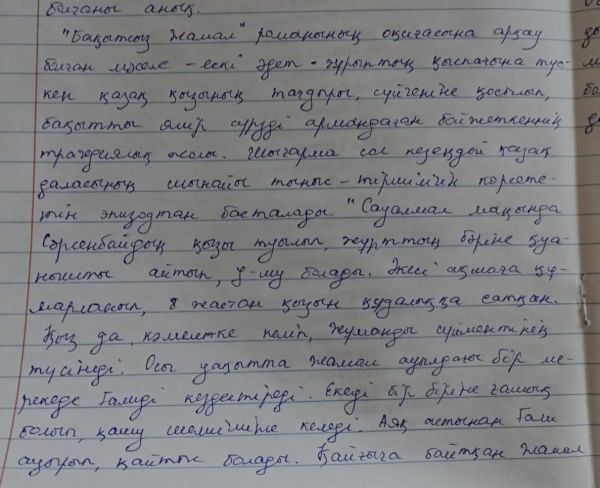 болғаны анық.
"Бақытсыз Жамал" романының оқиғасына арқау
болған мәселе - ескі әдет - ғұрыптың қыспағына түс-
кен қазақ қызының тағдыры, сүйгеніне қосылып,
бақытты өмір сүруді армандаған бойжеткеннің
трагедиялық жолы. Шығарма сол кезеңдегі қазақ
даласының шынайы тыныс - тіршілігін көрсете-
тін эпизодтан басталады. "Сауалмал маңында
Сәрсенбайдың қызы туылып, жұрттың бәріне қуа-
нышты айтып, у-шу болады. Әкесі ақшаға құ-
марланып, 8 жастан қызын құдалыққа сатқан.
Қыз да, кәмелетке келіп, Жұманды сүйментінің
түсінеді. Осы уақытта Жамал ауылдағы бір ме-
рекеде Ғалиді кездестіреді. Екеуі бір біріне ғашық
болып, қашу шешіміне келеді. Аяқ астынан Ғали
ауырып, қайтыс болады. Қайғыға батқан Жамал